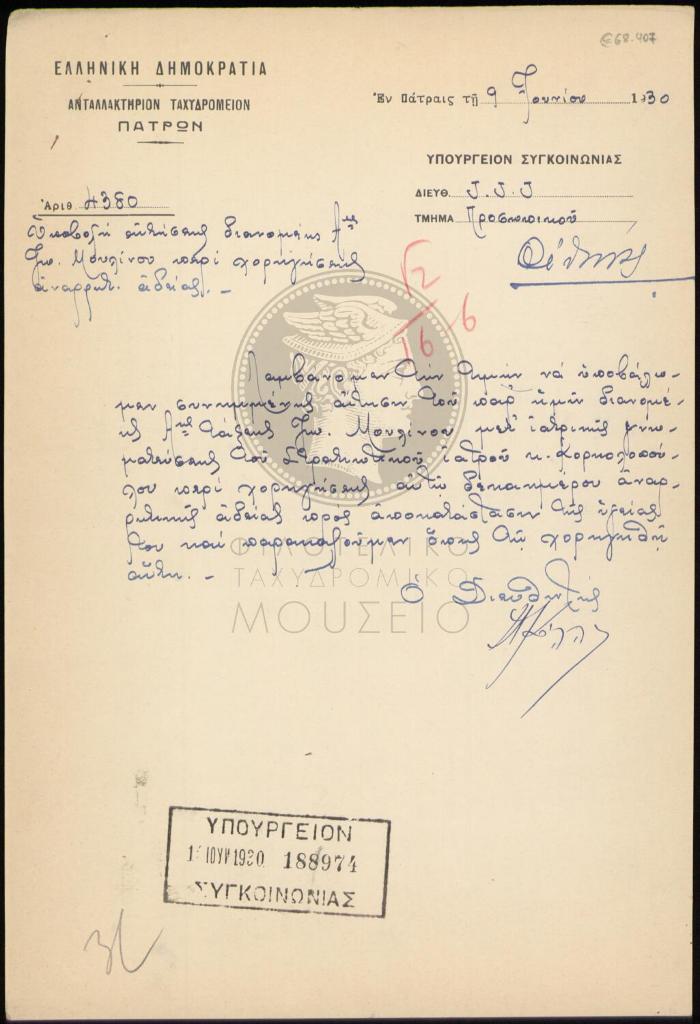 €68.407
ΕΛΛΗΝΙΚΗ ΔΗΜΟΚΡΑΤΙΑ
ΑΝΤΑΛΛΑΚΤΗΡΙΟΝ ΤΑΧΥΔΡΟΜΕΙΟΝ
ΠΑΤΡΩΝ
Ἐν Πάτραις τῇ 9 Ἰουνίου 1930
ΥΠΟΥΡΓΕΙΟΝ ΣΥΓΚΟΙΝΩΝΙΑΣ
ΔΙΕΥΘ. J.J.J
ΤΜΗΜΑ Προσωπικοῦ
Ἀριθ 4380
Ὑποβολή αἰτήσεως διανομέως Αης
Γεω. Μουλίνου περί χορηγήσεως
ἀναρρωτ. ἀδείας. –
16-6
Λαμβάνομεν τήν τιμήν νά ὑποβάλω-
μεν συνημμένως αἴτησιν τοῦ παρ' ἡμῖν διανομέ-
ως Αης τάξεως Γεω. Μουλίνου μετ' ἰατρικῆς γνω-
ματεύσεως τοῦ Στρατιωτικοῦ ἰατροῦ κ.
περί χορηγήσεως αὐτῷ δεκαημέρου ἀναρ-
ρωτικῆς ἀδείας πρός ἀποκατάστασιν τῆς ὑγείας
του καί παρακαλοῦμεν ὅπως τῷ χορηγηθῇ
αὕτη. –
Ὁ Διευθυντής
ΦΙΛΟΤΕΛΙΚΟ
ΤΑΧΥΔΡΟΜΙΚΟ
ΜΟΥΣΕΙΟ
ΥΠΟΥΡΓΕΙΟΝ
ΙΟΥΝ 1930 188974
ΣΥΓΚΟΙΝΩΝΙΑΣ